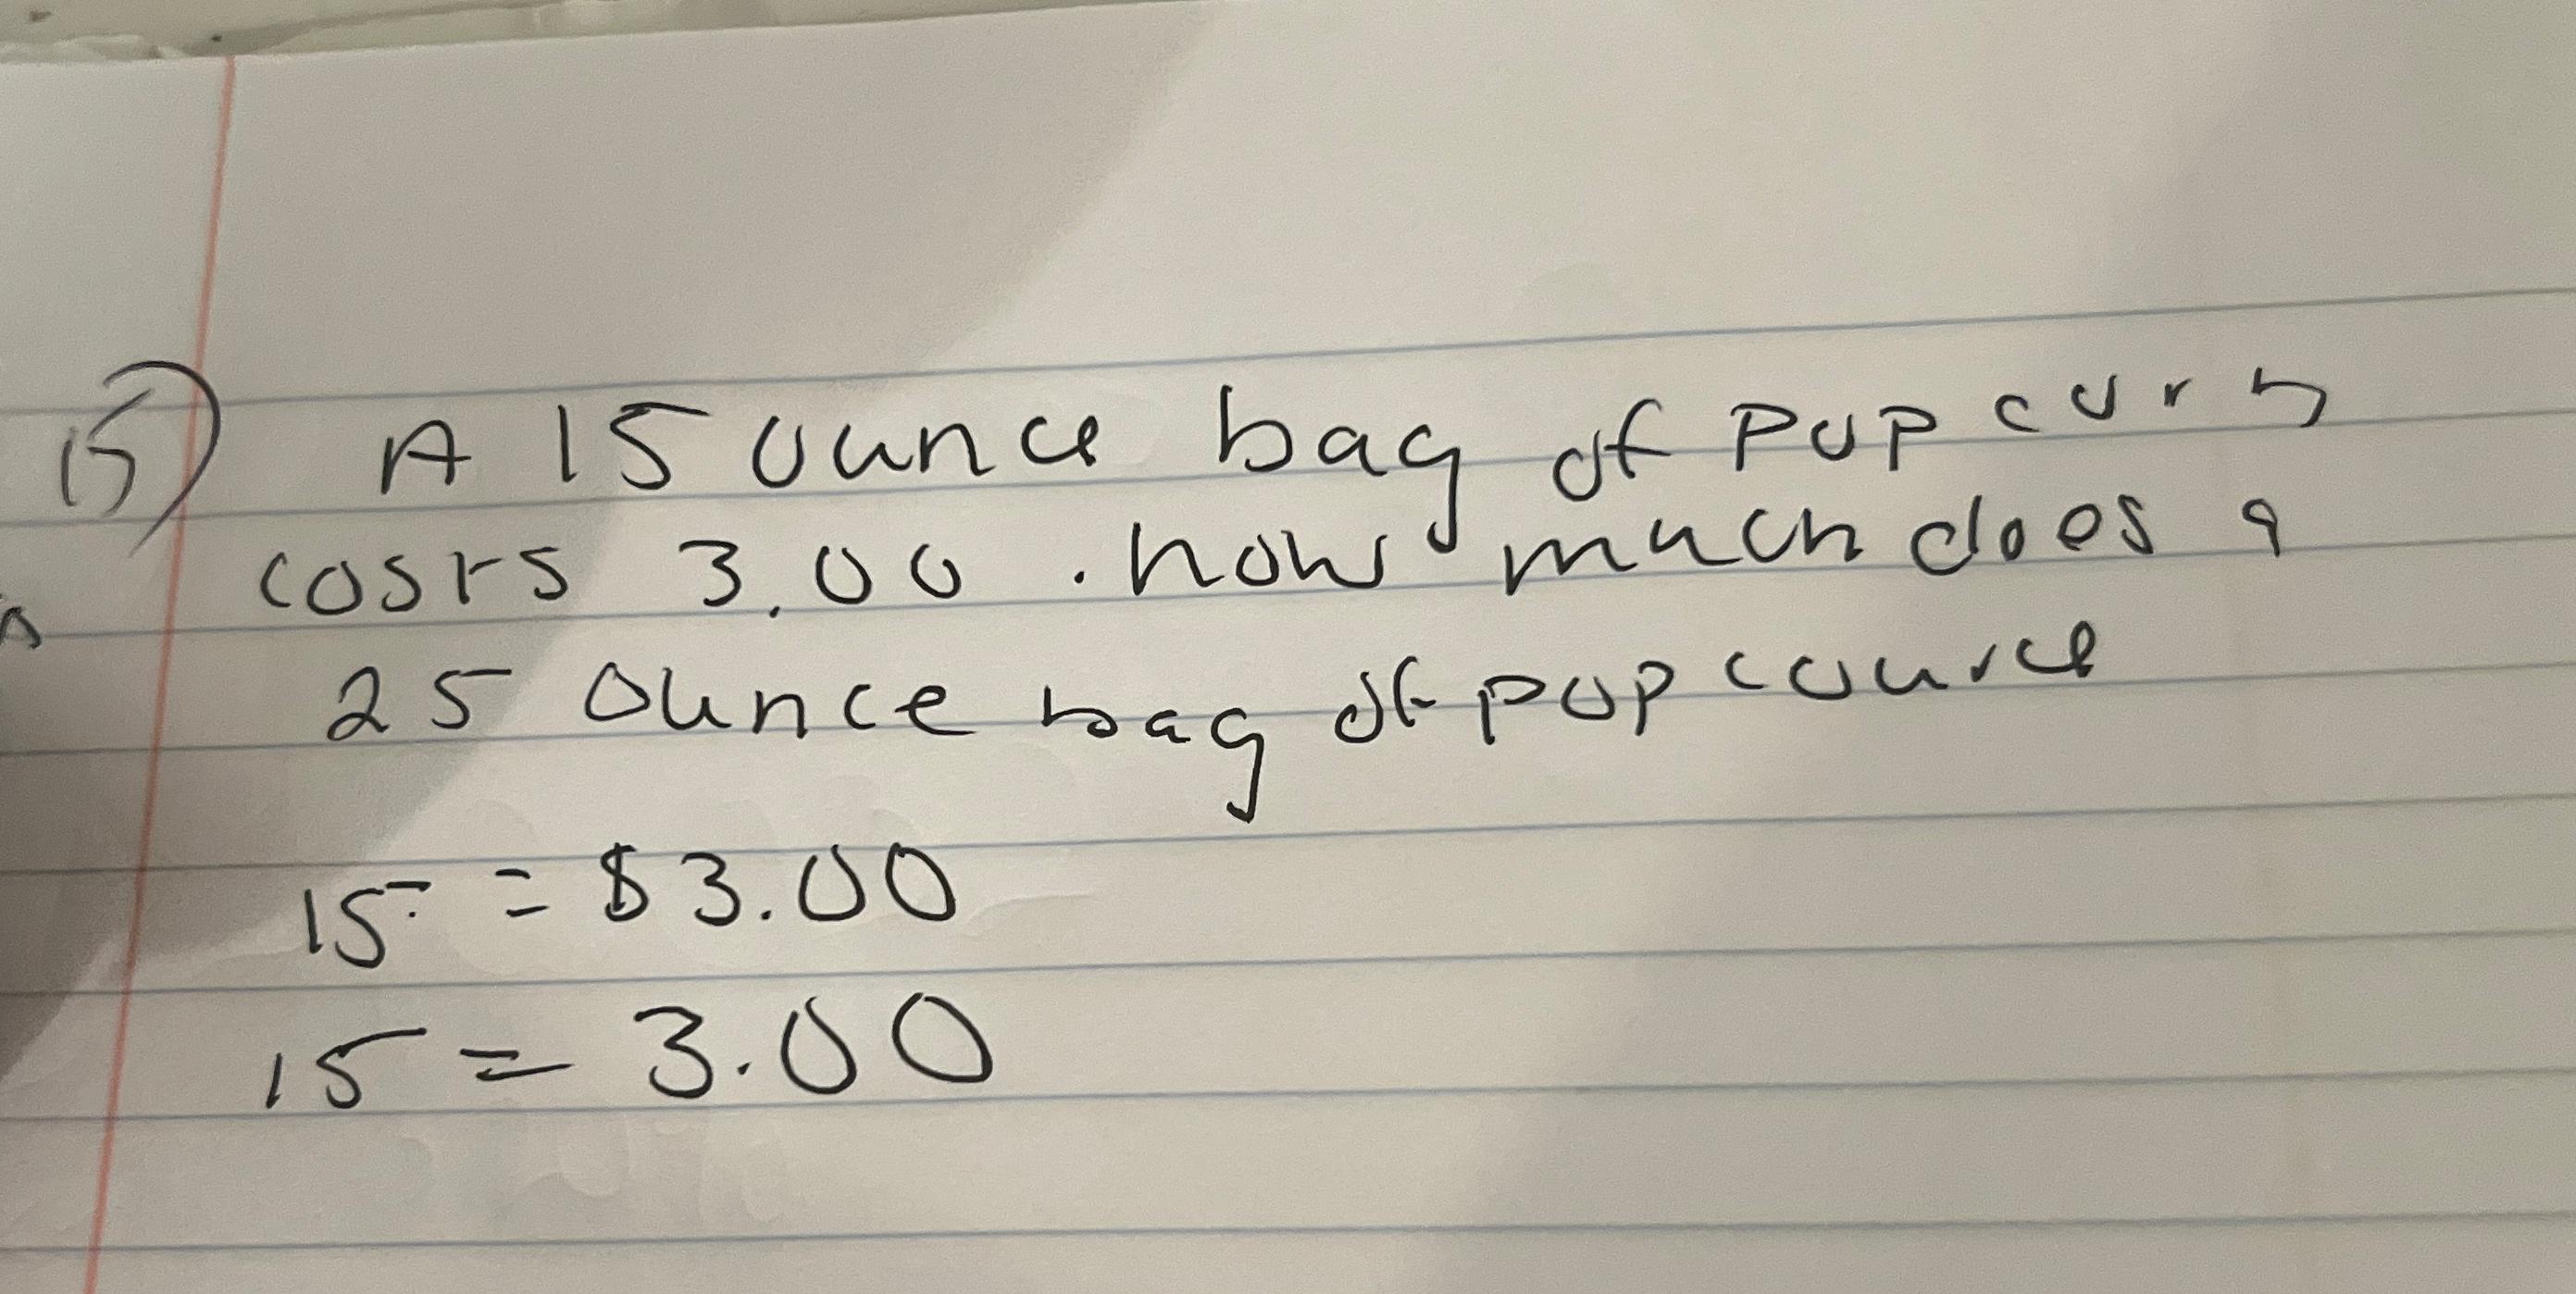 15) A 15 ounce bag of popcorn
costs 3.00 . how much does a
25 ounce bag of popcource
15 = $3.00
15 = 3.00